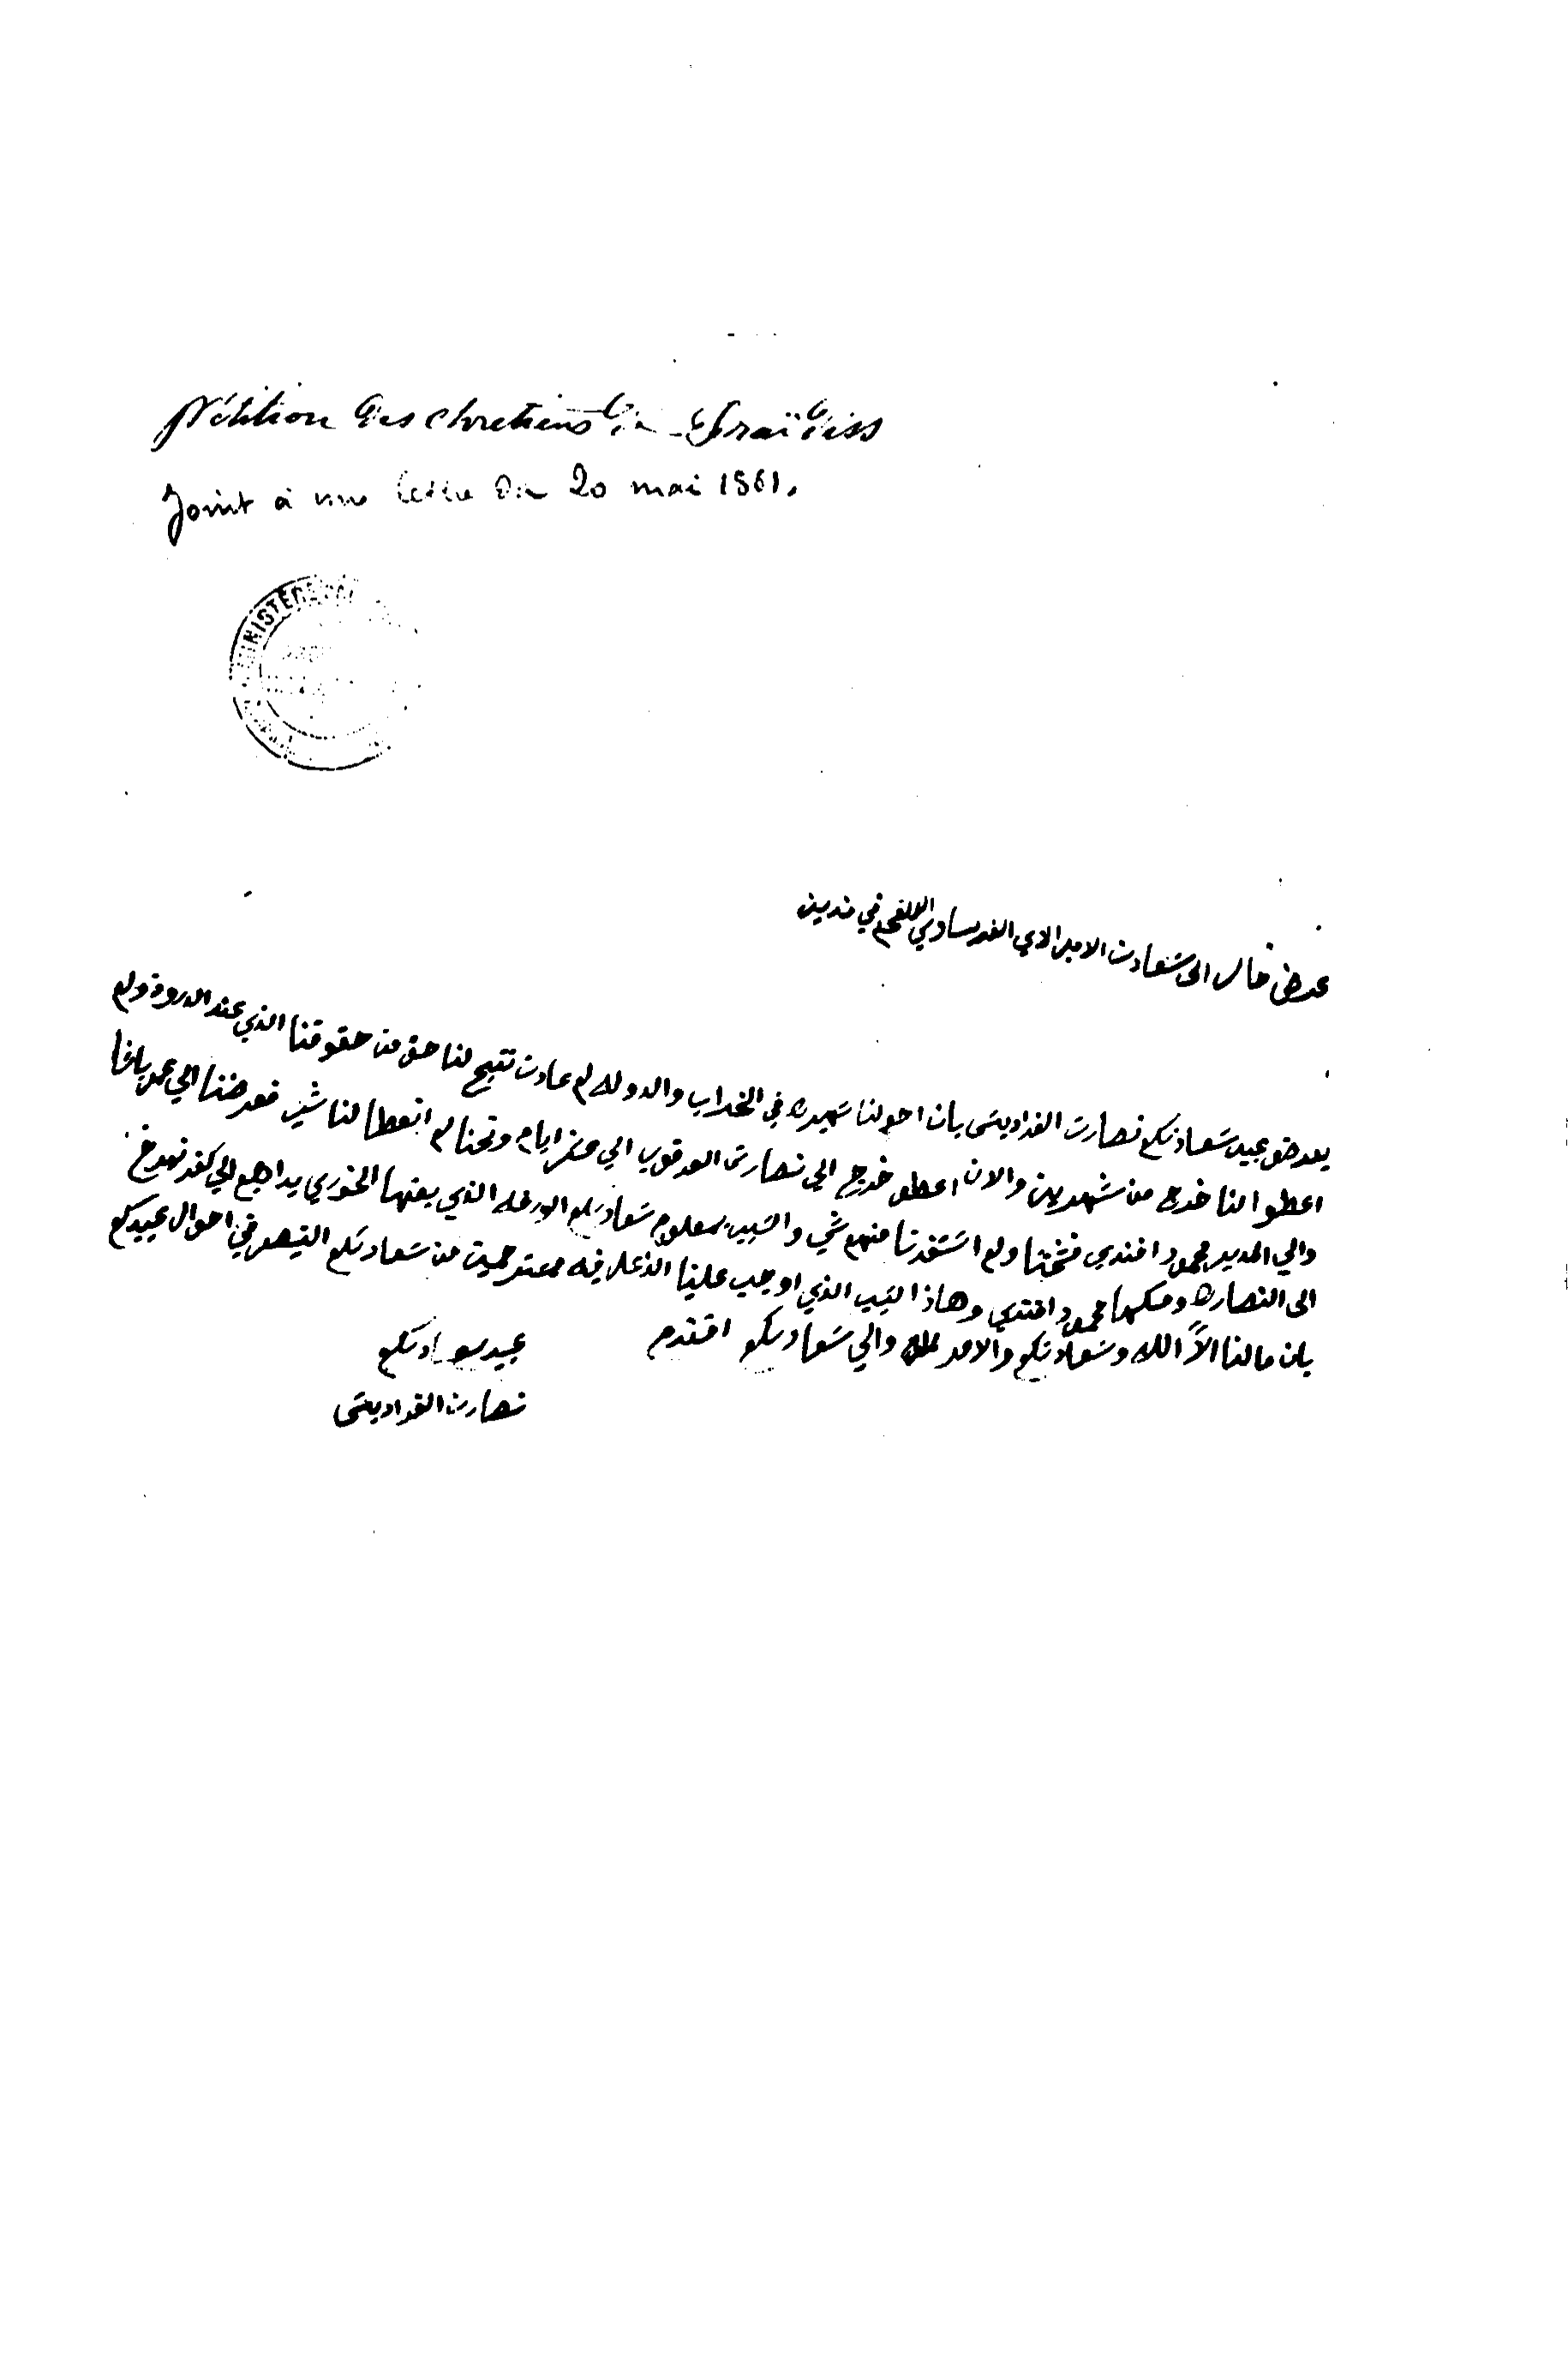 Pétition des chrétiens de Fraïdiss
Joint à une lettre du 20 mai 1861.
MINISTÈRE
عرض حال الى سَعادت الامير الاي الفرنساوي في
يعرضو عبيد سَعادتكم نصارت الفراديسَ بان احولنا شهيره في الخراب والدوله لم عادت تتبح لنا حق من حقوقنا الذي عند الدروة ولم
اعطو النا خرج من شهرين والان اعطو خرج الي نصارت العرقوب الي عشر ايام ونحنا لم انعطا لنا شي فعرضنا الي عمر باشا
والي المدير محمود افندي فشحتنا ولم استفدنا منهم شي والسَبب معلوم سَعادتكم الورقه الذي بعتها الخوري يراجع الي كفر نهرخ
الى النصاره ومسكها محمود افندي وهاذا السَبب الذي اوجب علينا الذعل فيه مسترحمين من سَعادتكم التبصر في احوال عبيدكم
بان مالنا الاً الله وسَعادتكم والامر لله والي سَعادتكم افندم
عبيد سعادتكم
نصارت الفراديسَ